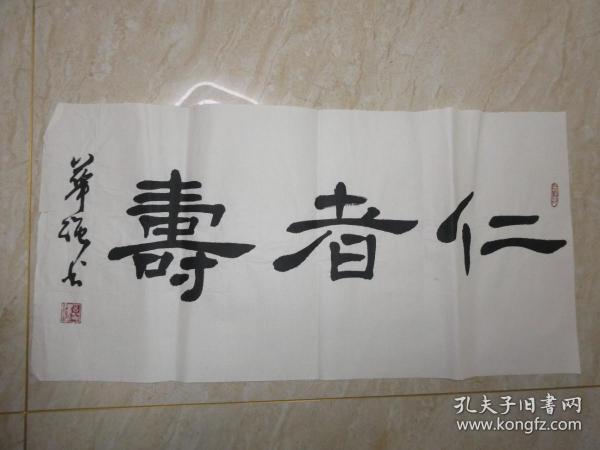 仁者壽
華强书
孔夫子旧書网
www.kongfz.com